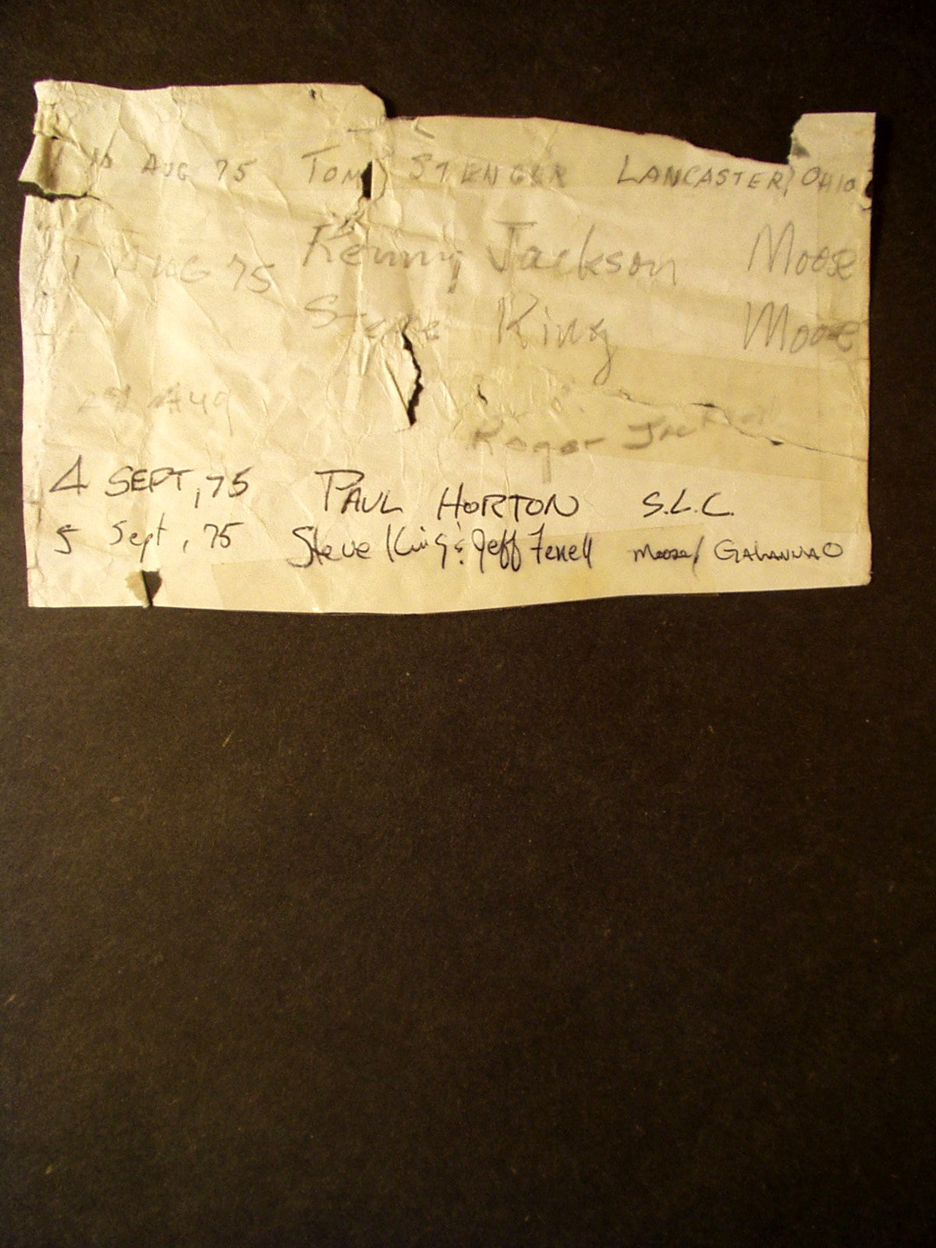 AUG 75 TOM STENGER LANCASTER, OHIO
AUG 75 Kenny Jackson Moose
Steve King Moose
Aug Roger
4 SEPT, 75 PAUL HORTON S.L.C.
5 Sept, 75 Steve King & Jeff Ferrell Moose/